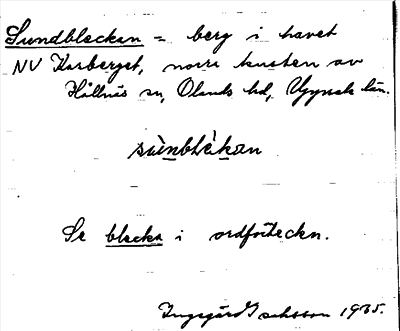 Sundblackan = berg i havet
NV Karberget, norra kusten av
Hållnäs sn, Olands hd, Uppsala län.
sùnblàkan
Se blacka i ordförteckn.
Ingegärd Isaksson 1935.